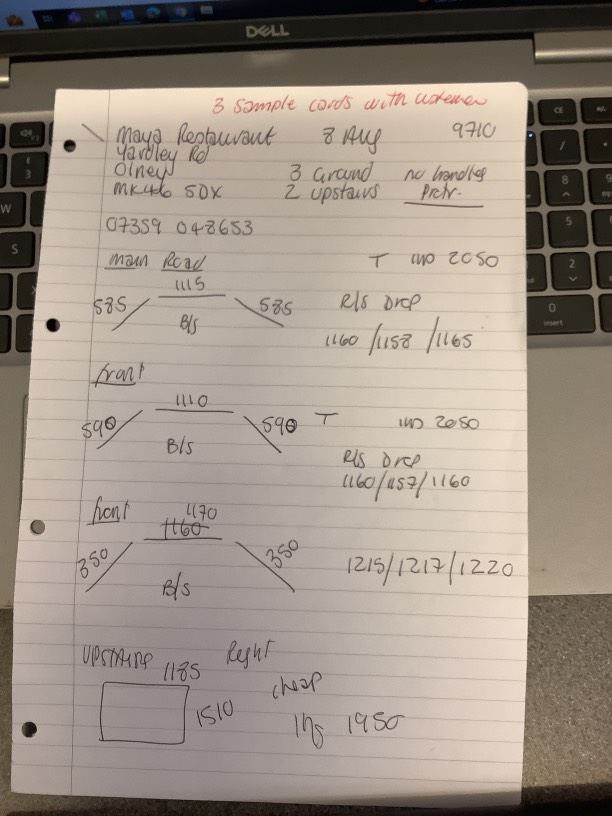 DELL
3 Sample cards with customer
Maya Restaurant 8 Aug 9710
Yardley Rd
Olney 3 Ground no handles
MK46 5DX 2 upstairs
07359 048653
Main Road T 2050
1115
585 585 R/S Drop
B/S
1160/1158/1165
front
1110
590 590 T 2050
B/S
R/S Drop
1160/1157/1160
front 1170
1160
350 350 1215/1217/1220
B/S
UPSTAIRS 1185 Right
cheap
1510
1950